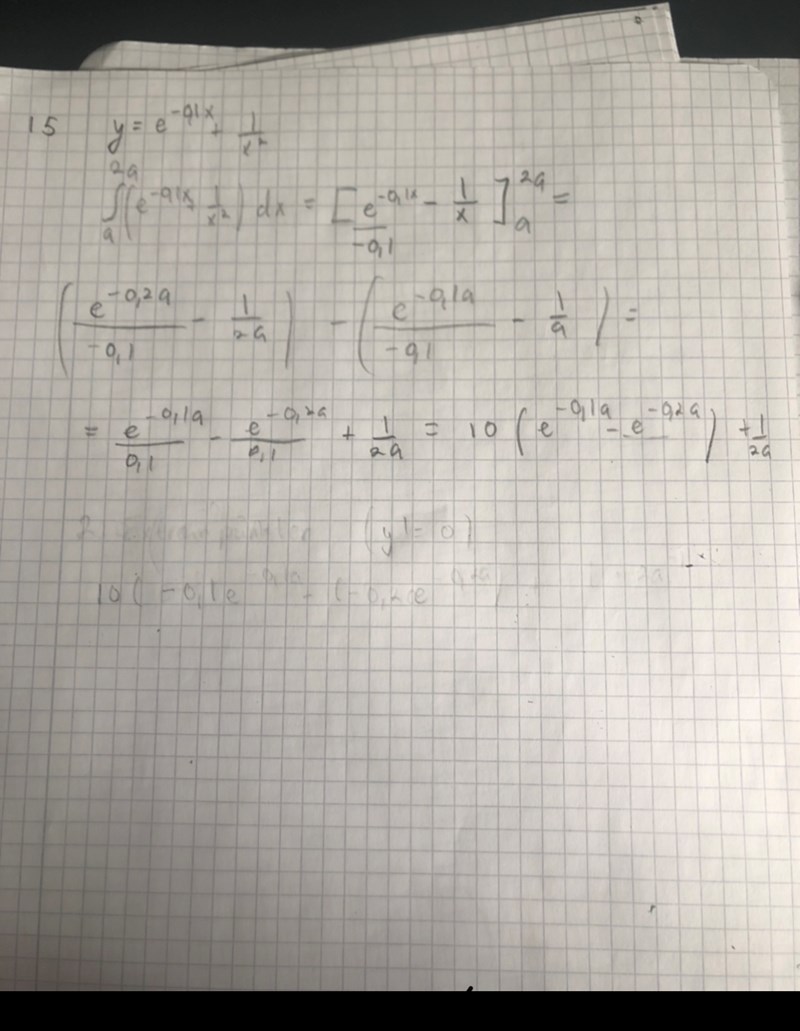 15 y = e^{-0,1x} + \frac{1}{x^2}
\int_a^{2a} (e^{-0,1x} + \frac{1}{x^2}) dx = [\frac{e^{-0,1x}}{-0,1} - \frac{1}{x}]_a^{2a} =
(\frac{e^{-0,2a}}{-0,1} - \frac{1}{2a}) - (\frac{e^{-0,1a}}{-0,1} - \frac{1}{a}) =
= \frac{e^{-0,1a}}{0,1} - \frac{e^{-0,2a}}{0,1} + \frac{1}{2a} = 10 (e^{-0,1a} - e^{-0,2a}) + \frac{1}{2a}
(y' = 0)
10 (-0,1e